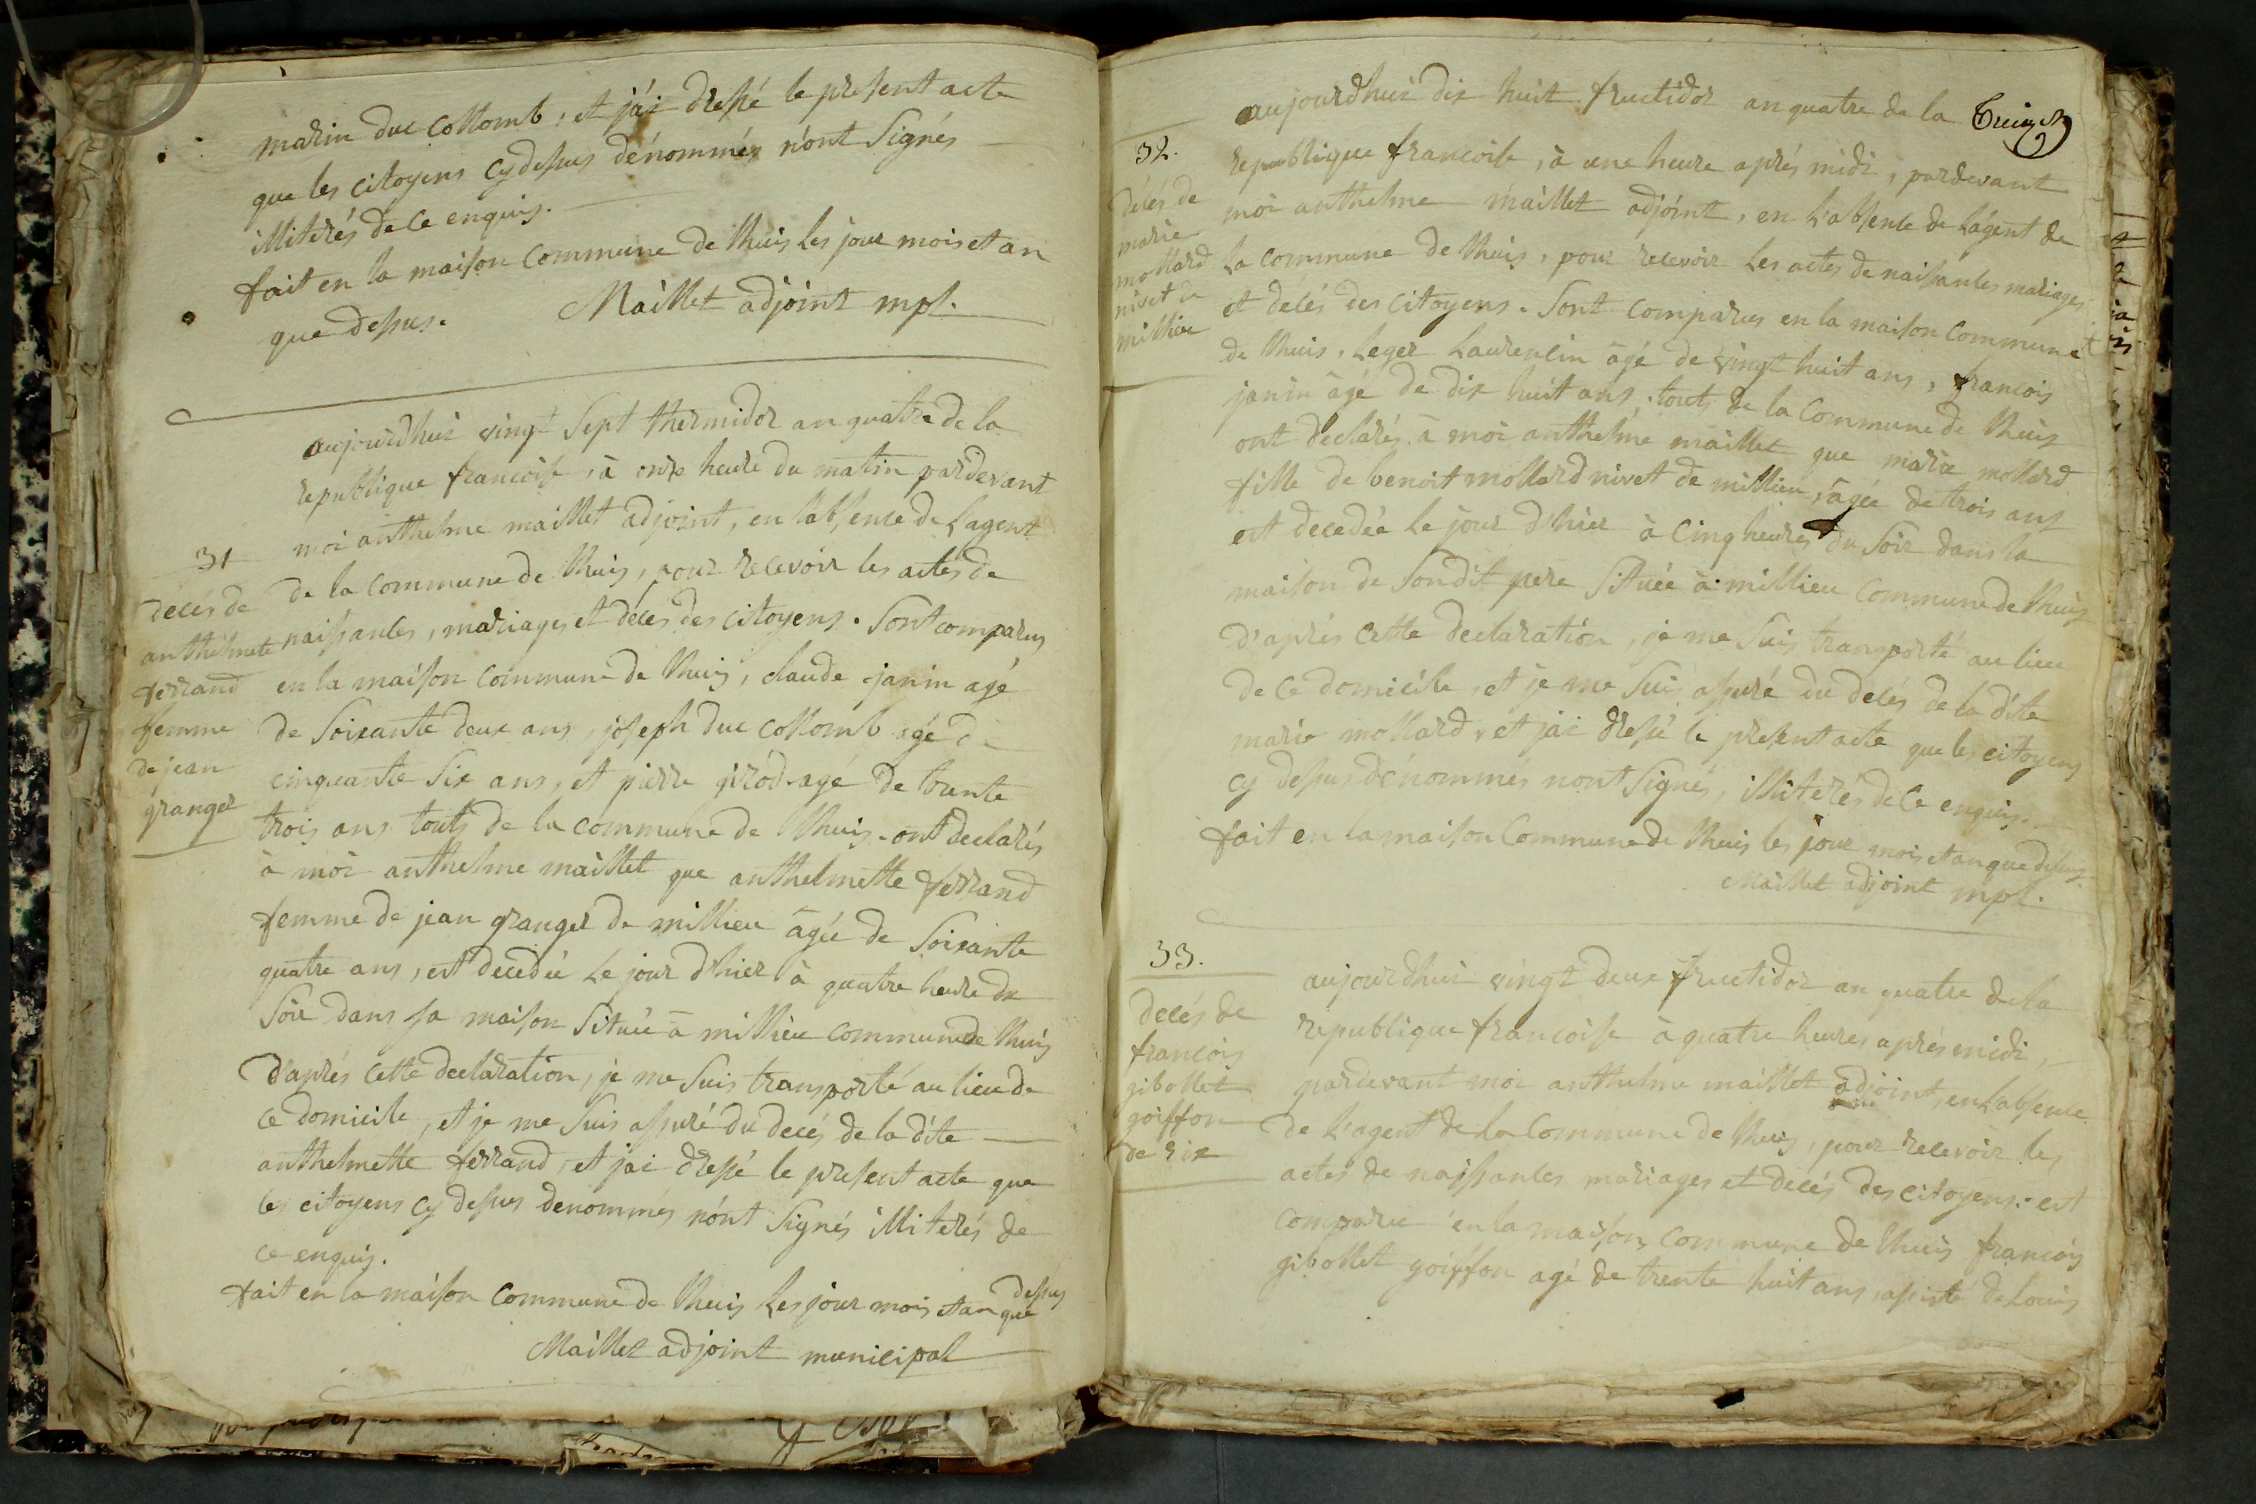 marin duc collomb, et j'ái dressé le present acte
que les citoyens cydessus dénommés n'ont Signés
illiterés de ce enquis.
fait en la maison commune de lhuis les jour mois et an
que dessus. Maillet adjoint mpl.
aujourdhui vingt Sept thermidor an quatre de la
republique francoise, à onze heure du matin pardevant
moi anthelme maillet adjoint, en l'absence de l'agent
31
de la commune de lhuis, pour recevoir les actes de
naissances, mariages et décés des citoyens. Sont comparus
en la maison commune de lhuis, claude janin agé
de Soixante deux ans, joseph duc collomb agé de
cinquante Six ans, et pierre giród agé de trente
trois ans touts de la commune de lhuis. ont declarés
à moi anthelme maillet que anthelmette ferrand
femme de jean granger de millieu agée de Soixante
quatre ans, est decedée le jour d'hier à quatre heure du
Soir dans sa maison Située à millieu commune de lhuis
D'aprés cette declaration, je me Suis transporté au lieu de
ce domicile, et je me Suis assuré du decés de la dite
anthelmette ferrand, et j'ai dressé le present acte que
les citoyens cy dessus denommés n'ont Signés illiterés de
ce enquis.
fait en la maison commune de lhuis les jour mois et an que dessus
Maillet adjoint municipal
décés de
anthelmete
ferrand
femme
de jean
granger
aujourdhui dix huit fructidor an quatre de la
32.
republique francoise, à une heure aprés midi, pardevant
moi anthelme maillet adjoint, en l'absence de l'agent de
la commune de lhuis, pour recevoir les actes de naissances mariages
et decés des citoyens. Sont comparus en la maison commune
de lhuis, Leger Laurencin agé de vingt huit ans, francois
janin agé de dix huit ans, touts de la commune de lhuis
ont declarés à moi anthelme maillet que marie mollard
fille de benoit mollard nivet de millieu, agée de trois ans
est decedée le jour d'hier à cinq heures du Soir dans la
maison de Sondit pere Située à millieu commune de lhuis
D'aprés cette declaration, je me Suis transporté au lieu
de ce domicile, et je me Suis assuré du decés de la dite
marie mollard, et j'ai dressé le present acte que les citoyens
cy dessus dénommés n'ont Signés, illiterés de ce enquis.
fait en la maison commune de lhuis les jour mois et an que dessus
Maillet adjoint mpl.
décés de
marie
mollard
nivet de
millieu
33.
aujourdhui vingt deux fructidor an quatre de la
republique francoise à quatre heures aprés midi,
pardevant moi anthelme maillet adjoint, en l'absence
de l'agent de la commune de lhuis, pour recevoir les
actes de naissances mariages et decés des citoyens. est
comparu en la maison commune de lhuis francois
gibollet goiffon agé de trente huit ans, assisté de Louis
decés de
francois
gibollet
goiffon
de rix